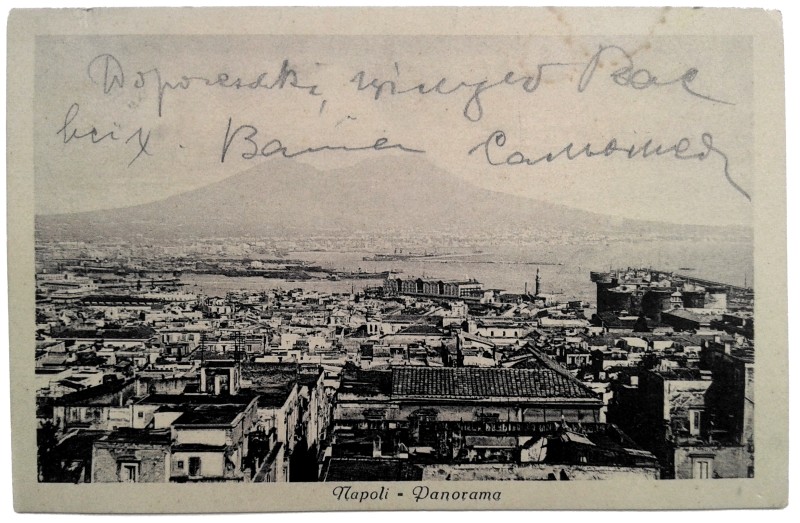 Дорогенькі, цілую Вас
всіх. Ваша Сальомея
Napoli - Panorama